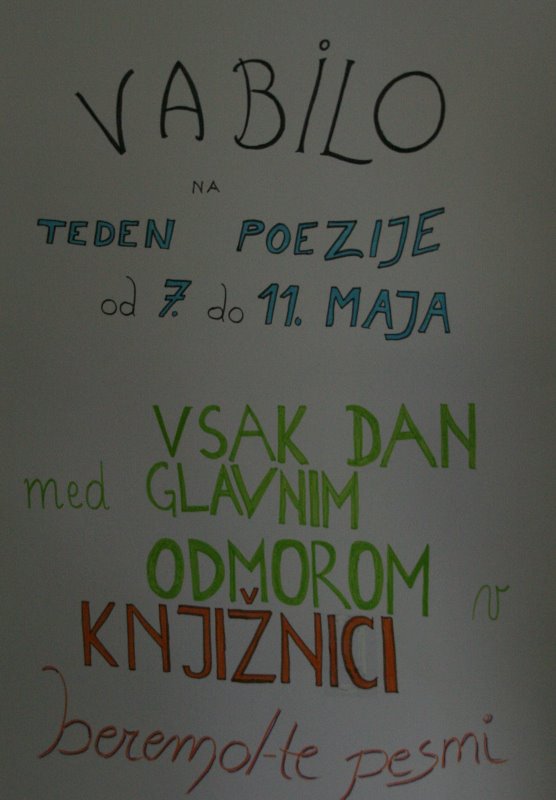 VABiLO
NA
TEDEN POEZIJE
od 7. do 11. MAJA
VSAK DAN
med GLAVNIM
ODMOROM v
KNJIŽNICI
beremo/-te pesmi